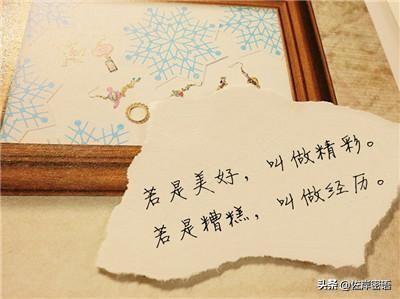 若是美好，叫做精彩。
若是糟糕，叫做经历。
头条 @佐岸密语